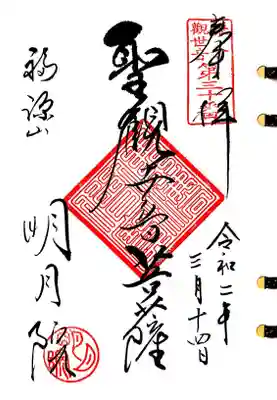 奉拝
觀世音第三十番
令和二年
三月十四日
聖觀世音菩薩
福源山
明月院